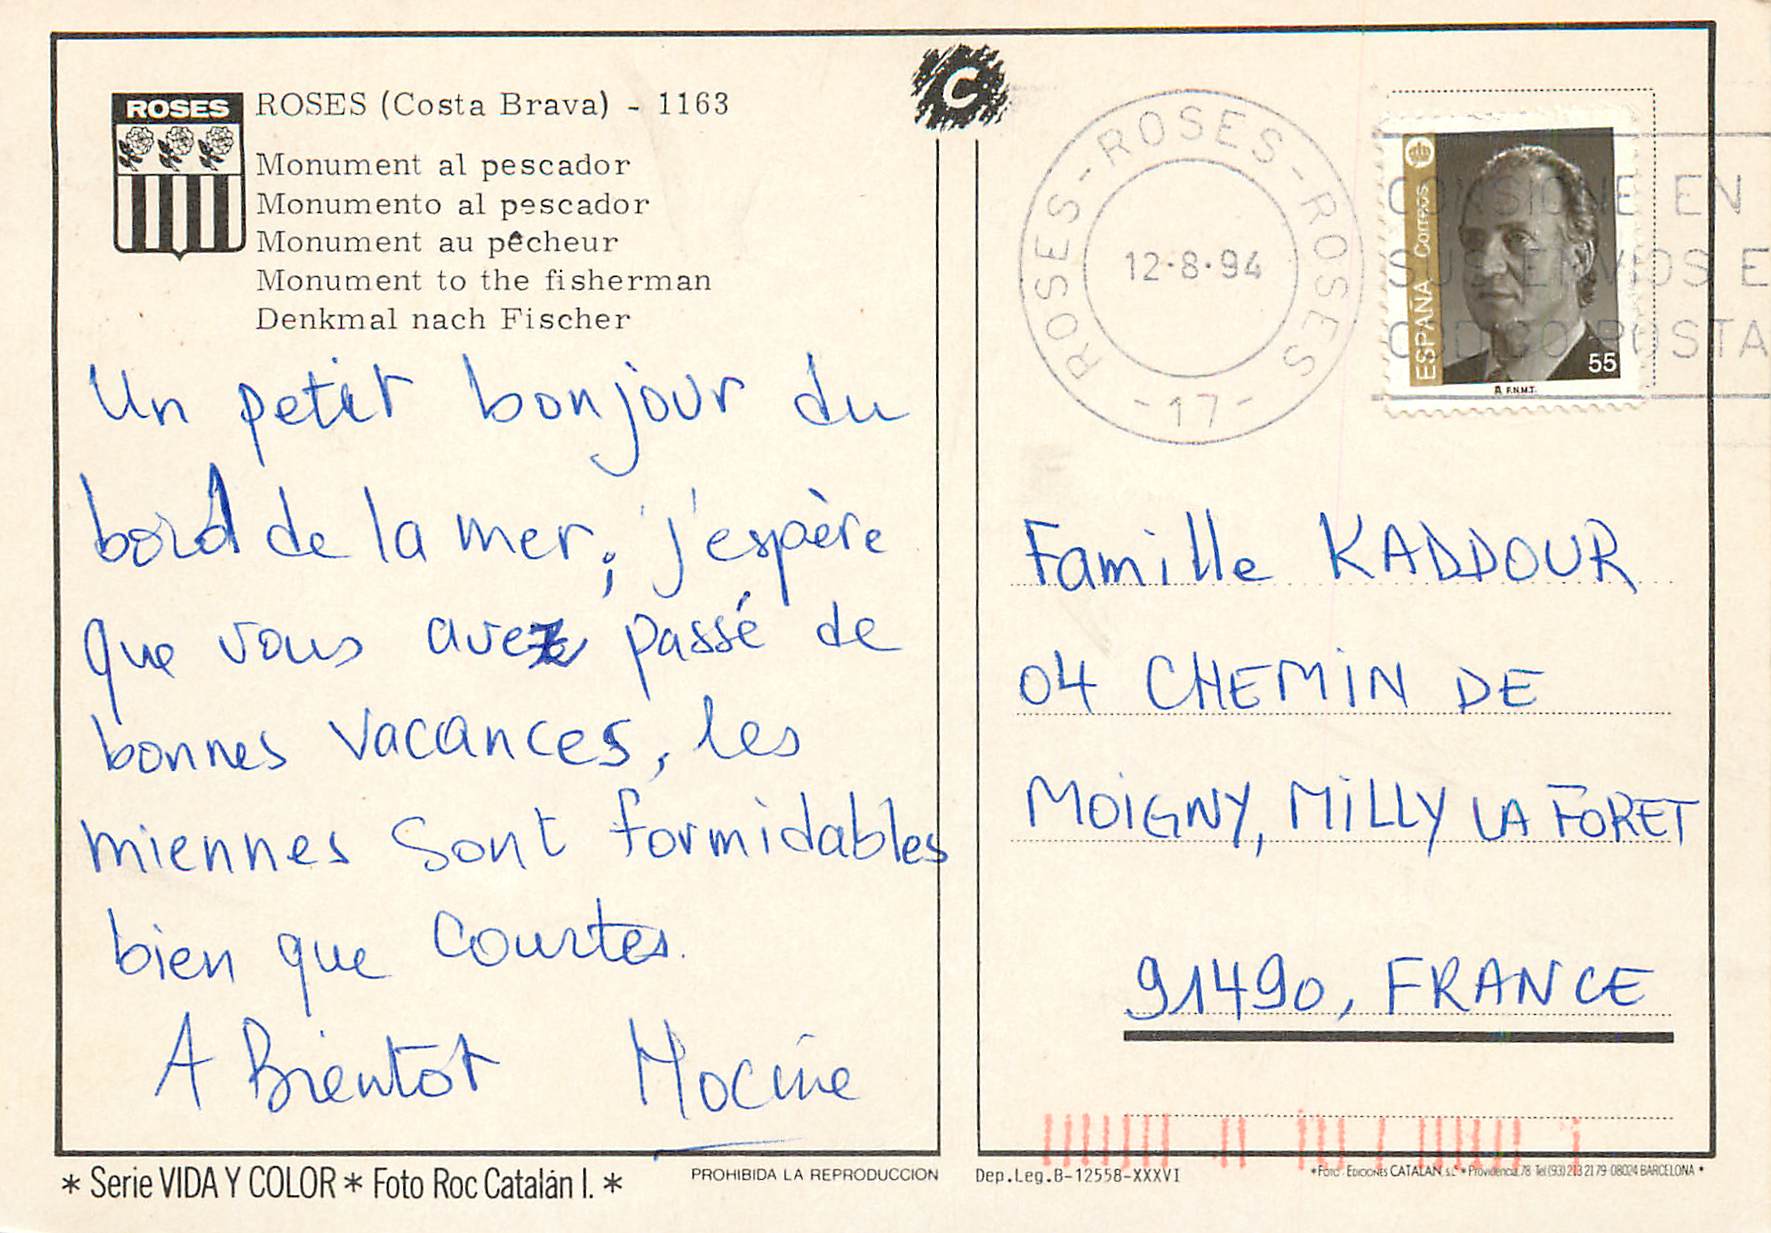 ROSES
ROSES (Costa Brava) - 1163
Monument al pescador
Monumento al pescador
Monument au pêcheur
Monument to the fisherman
Denkmal nach Fischer
Un petit bonjour du
bord de la mer, j'espère
que vous avez passé de
bonnes vacances, les
miennes sont formidables
bien que courtes.
A Bientot Hocine
* Serie VIDA Y COLOR * Foto Roc Catalán I. *
PROHIBIDA LA REPRODUCCION
C
ROSES - ROSES - ROSES - ROSES
12·8·94
-17-
ESPAÑA Correos
55
F.N.M.T.
CONSIGNE EN
SUS ENVIOS E
CODIGO POSTA
Famille KADDOUR
04 CHEMIN DE
MOIGNY, MILLY LA FORET
91490, FRANCE
Dep.Leg.B-12558-XXXVI
*Foto: EDICIONES CATALAN, S.L. * Providencia, 78 Tel (93) 213 21 79 08024 BARCELONA *